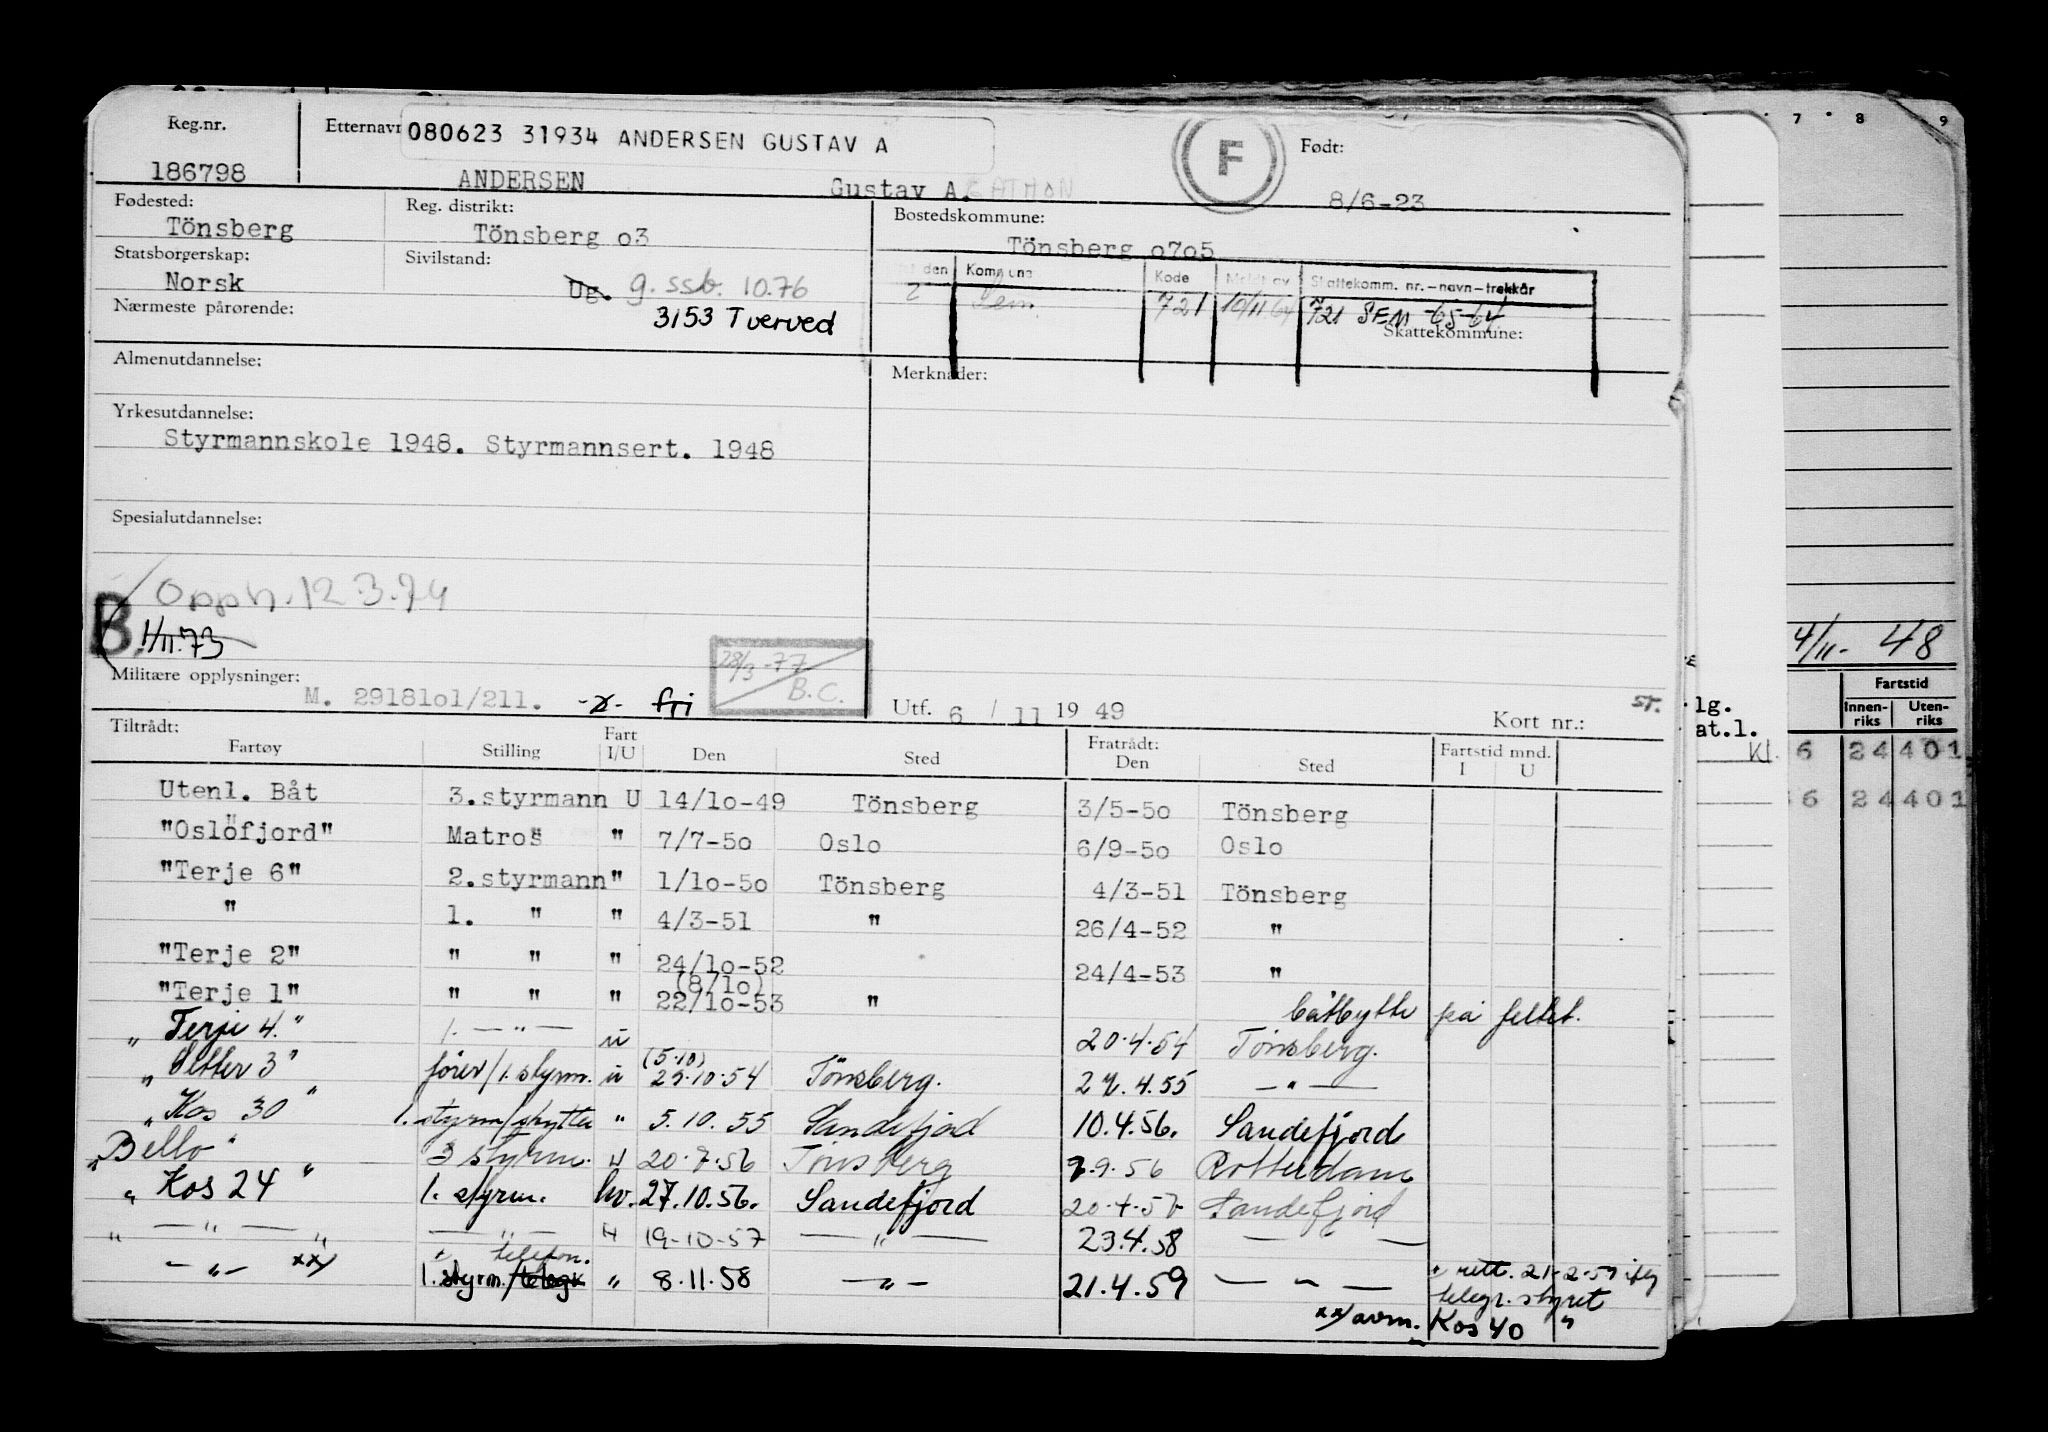 Reg.nr. Etternavn 080623 31934 ANDERSEN GUSTAV A F Født:
186798 ANDERSEN Gustav A. GATHON 8/6-23
Fødested: Reg. distrikt: Bostedskommune:
Tönsberg Tönsberg o3 Tönsberg o7o5
Statsborgerskap: Sivilstand: den Kommune Kode Meldt av Skattekomm. nr.-navn-trekkår
Norsk Ug. g. ssb. 10.76 2 Sem 721 10/11 64 721 SEM -65-64
Nærmeste pårørende: 3153 Tverved Skattekommune:
Almenutdannelse: Merknader:
Yrkesutdannelse:
Styrmannskole 1948. Styrmannsert. 1948
Spesialutdannelse:
Opph. 12.3.74
B 1/11.73
28/3-77
B.C.
Militære opplysninger: M. 29181o1/211. fri Utf. 6 / 11 19 49 Kort nr.: ST.
Tiltrådt: Fartøy Stilling Fart I/U Den Sted Fratrådt: Den Sted Fartstid mnd. I U
Utenl. Båt 3.styrmann U 14/1o-49 Tönsberg 3/5-5o Tönsberg
"Oslöfjord" Matros " 7/7-5o Oslo 6/9-5o Oslo
"Terje 6" 2.styrmann " 1/1o-5o Tönsberg 4/3-51 Tönsberg
" 1. " " 4/3-51 " 26/4-52 "
"Terje 2" " " " 24/1o-52 24/4-53 "
"Terje 1" " " " (8/1o) 22/1o-53 " båtbytte på feltet.
"Terje 4." 1. — " — u 20.4.54 Tönsberg.
"Setter 3" förer/1. styrm. u (5.10) 25.10.54 Tönsberg. 22.4.55 — " —
"Kos 30" 1. styrm/skytter " 5.10.55 Sandefjord 10.4.56. Sandefjord
"Bello" 3 styrm. H 20.7.56 Tönsberg 7.9.56 Rotterdam
"Kos 24" 1. styrm. hv. 27.10.56. Sandefjord 20.4.57 Sandefjord
" — " — " — " — H 19-10-57 — " — 23.4.58 — " —
— " — xx/ 1. styrm./telegr telefon. " 8.11.58 — " — 21.4.59 — " — rett. 21-2-59 iflg
telegr. styret
xx/ avm. Kos 40 "
7 8 9
4/11- 48
Fartstid
Innen-riks Uten-riks
lg.
at.l.
Kl. 6 24 401
6 24 401